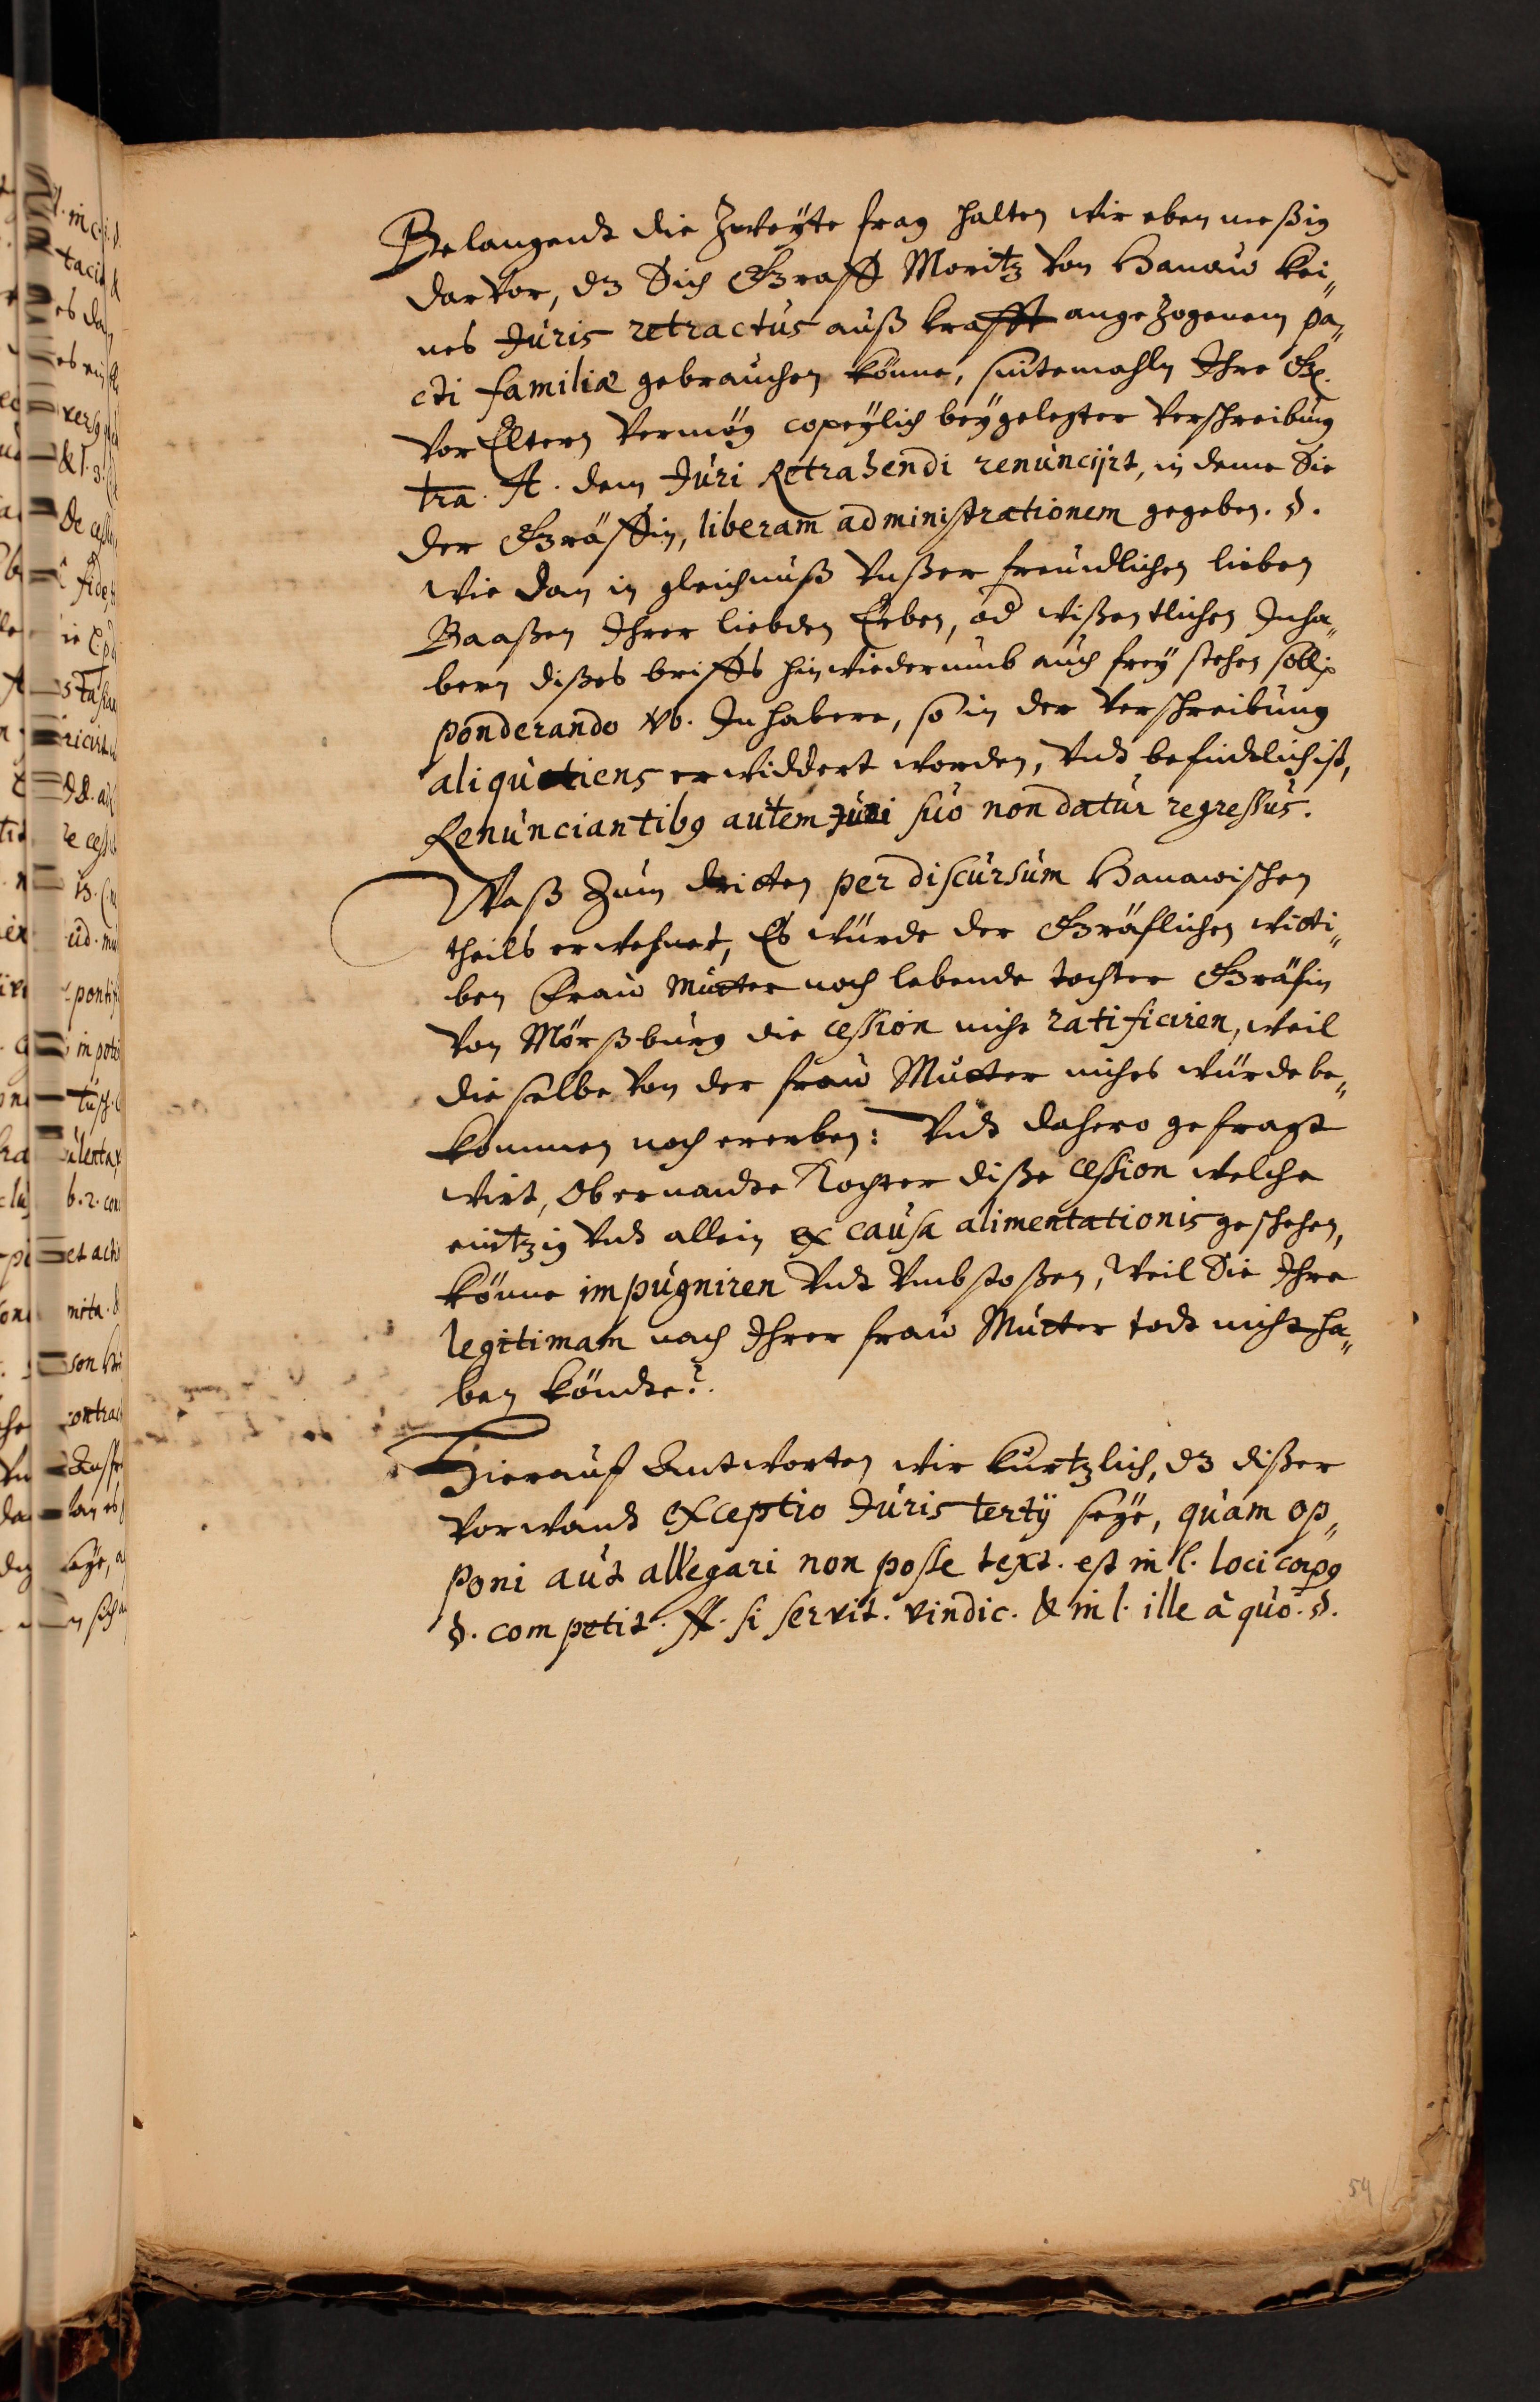 Belangendt die Zweÿte frag halten wir eben meßig
darvor, dz Sich Graff Moritz von Hanaw kei„
nes Juris retractus auß krafft angezogenem pa„
cti familiæ gebrauchen könne, sintemahln Ihre Gn.
vor Eltern vermög copeÿlich beÿgelegter Verschreibung
tra. A. dem Juri Retrahendi renuncijrt, in deme Sie
der Gräffin, liberam administrationem gegeben. §.
wie dan in gleichnuß Vnßer freundlichen lieben
Baaßen Ihrer liebden Erben, od wißentlichen Inha„
bern dißes brieffs hinwiederumb auch freÿ stehen soll
ponderando vb. Inhabere, so in der Verschreibung
aliquotiens erwiddert worden, Vndt befindtlich ist,
Renunciantibg autem Juri suo non datur regressus.
Waß Zum dritten per discursum Hanawischen
theils erwehnet, Es würde der Gräflichen witti„
ben Fraw Mutter noch lebende tochter Gräfin
von Mörßburg die cession nicht ratificiren, weil
dieselbe von der fraw Mutter nichts würde be„
kommen noch ererben: Vndt dahero gefragt
wirt, Ob ernandte Tochter diße cession welche
eintzig Vndt allein ex causa alimentationis geschehen,
könne impugniren Vndt Vmbstoßen, weil Sie Ihre
legitimam nach Ihrer fraw Mutter todt nicht ha„
ben köndte?.
Hierauf Antworten wir kurtzlich, dz dißer
vorwandt exceptio Juris tertÿ seÿe, quam op„
poni aut allegari non posse text. est in l. loci corpg
§. competit. ff. si servit. vindic. & in l. ille à quo. §.
54